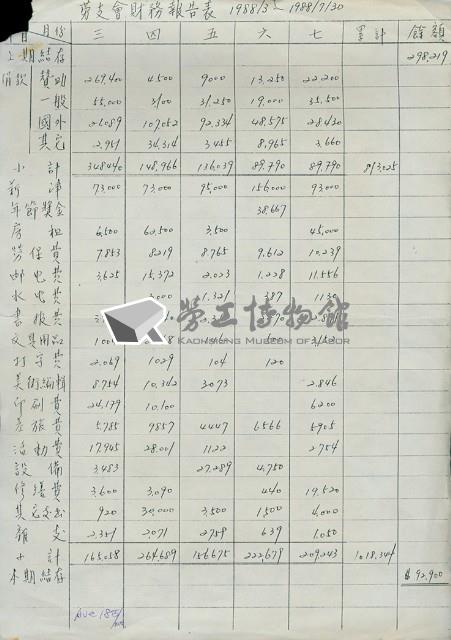 勞支會財務報告表 1988/3~1988/7/30
項目 月份 三 四 五 六 七 累計 餘額
上期結存 298,219
捐款 贊助 269,400 4500 9000 13,250 22,200
一般 55,000 3,100 31,250 19,000 35,500
國外 21,089 107,052 92,334 48,575 28,430
其它 2,951 34,314 3,455 8,965 3,660
小計 348,440 148,966 136,039 89,790 89,790 813,025
薪津 73,000 73,000 95,000 156,000 93,000
年節獎金 38,667
房租 6,500 60,500 3,500 45,000
勞保費 7,853 8,219 8,765 9,612 10,239
郵电費 3,625 15,372 2,023 1,228 11,556
水电費 1,321 387 1130
書報費
文具用品
打字費 2,069 1029 104 120
美術編輯 8,754 10,342 3,073 2,846
印刷費 24,179 10,100 6200
差旅費 5,785 9857 4447 6566 5,905
活動費 17,945 28,001 1,122 2754
設備 3,483 27,289 4,750
修繕費 3,600 3,090 440 19,520
其它支出 920 30,000 3,500 1,500 4,000
雜支 2,351 2,071 2,759 639 1,050
小計 165,058 264,689 156,675 222,679 209,243 1,018,344
本期結存 $92,900
勞工博物館
KAOHSIUNG MUSEUM OF LABOR